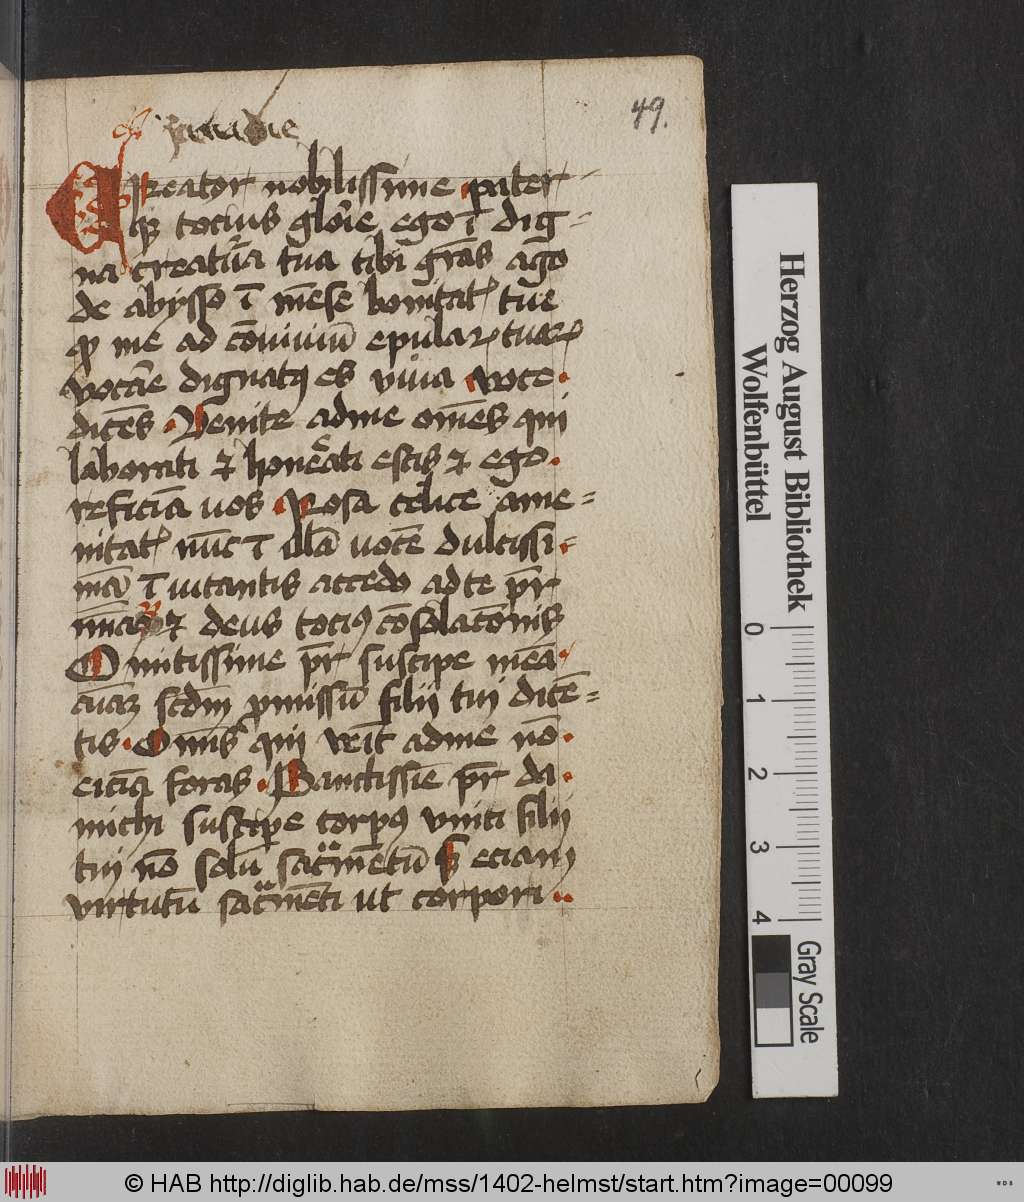 49.
Creator nobilissime pater
qꝫ tocius glorie ego ī dig-
na creatura tua tibi grās ago
de abysso ī mēse bonitatꝭ tue
me ad cōuiuiū epularꝝ tuarꝝ
vocare dignatꝰ es viua voce
dicēs Venite ad me om̄es qui
laborati ⁊ honerati estis ⁊ ego
reficiā uos Rosa celice ame-
nitatꝭ nūc ī illā vocē dulcissi-
mā ī uitantis accedo ad te pr̄
⁊ deus tociꝰ cōsolacōnis
O mitissime pr̄ suscipe meā
scdm̄ pmissū filii tui dicē-
tis Omīs qui ad me nō
eiciā foras Sanctissīe pr̄ da
michi suscipe corpꝰ vniti filii
tui nō solū sacr̄mētū sꝫ eciam
virtutū sacr̄mēti ut corpori
Herzog August Bibliothek
Wolfenbüttel
0 1 2 3 4
Gray Scale
© HAB http://diglib.hab.de/mss/1402-helmst/start.htm?image=00099